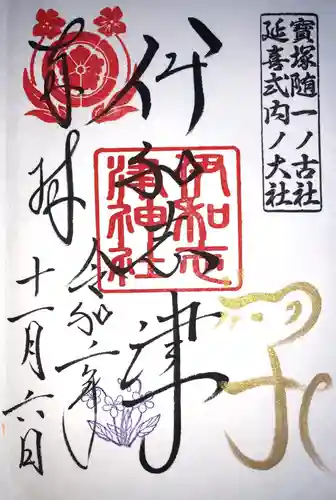 寶塚随一ノ古社
延喜式内ノ大社
伊和志津
伊和志
津神社
子
奉拝
令和二年
十一月六日